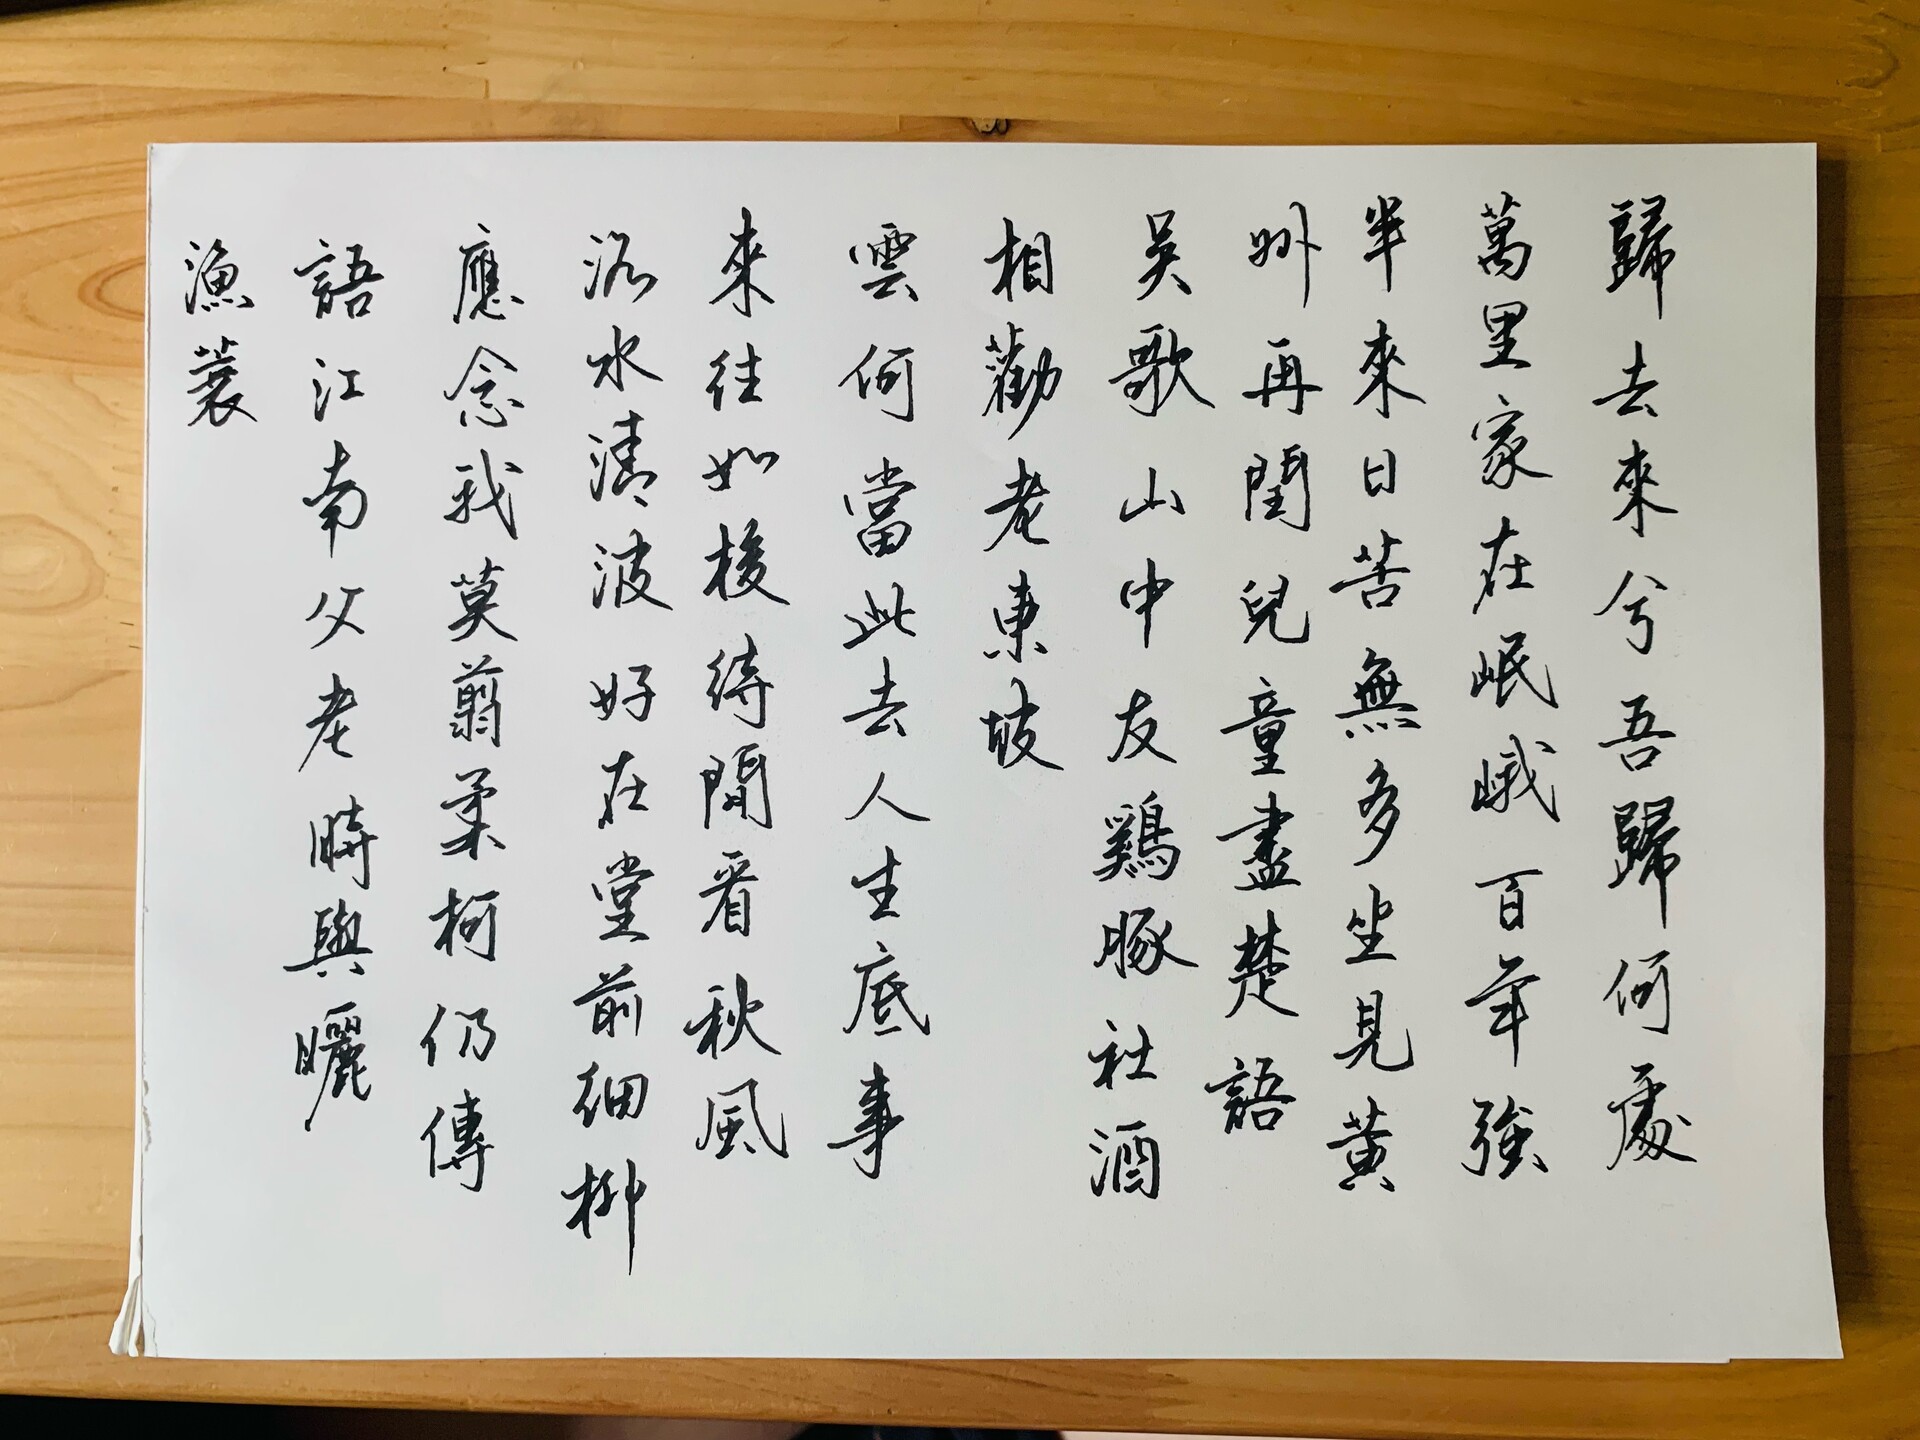 歸去來兮吾歸何處
萬里家在岷峨百年強
半來日苦無多坐見黃
州再閏兒童盡楚語
吳歌山中友鷄豚社酒
相勸老東坡
雲何當此去人生底事
來往如梭待閒看秋風
洛水清波好在堂前細柳
應念我莫翦柔柯仍傳
語江南父老時與曬
漁蓑